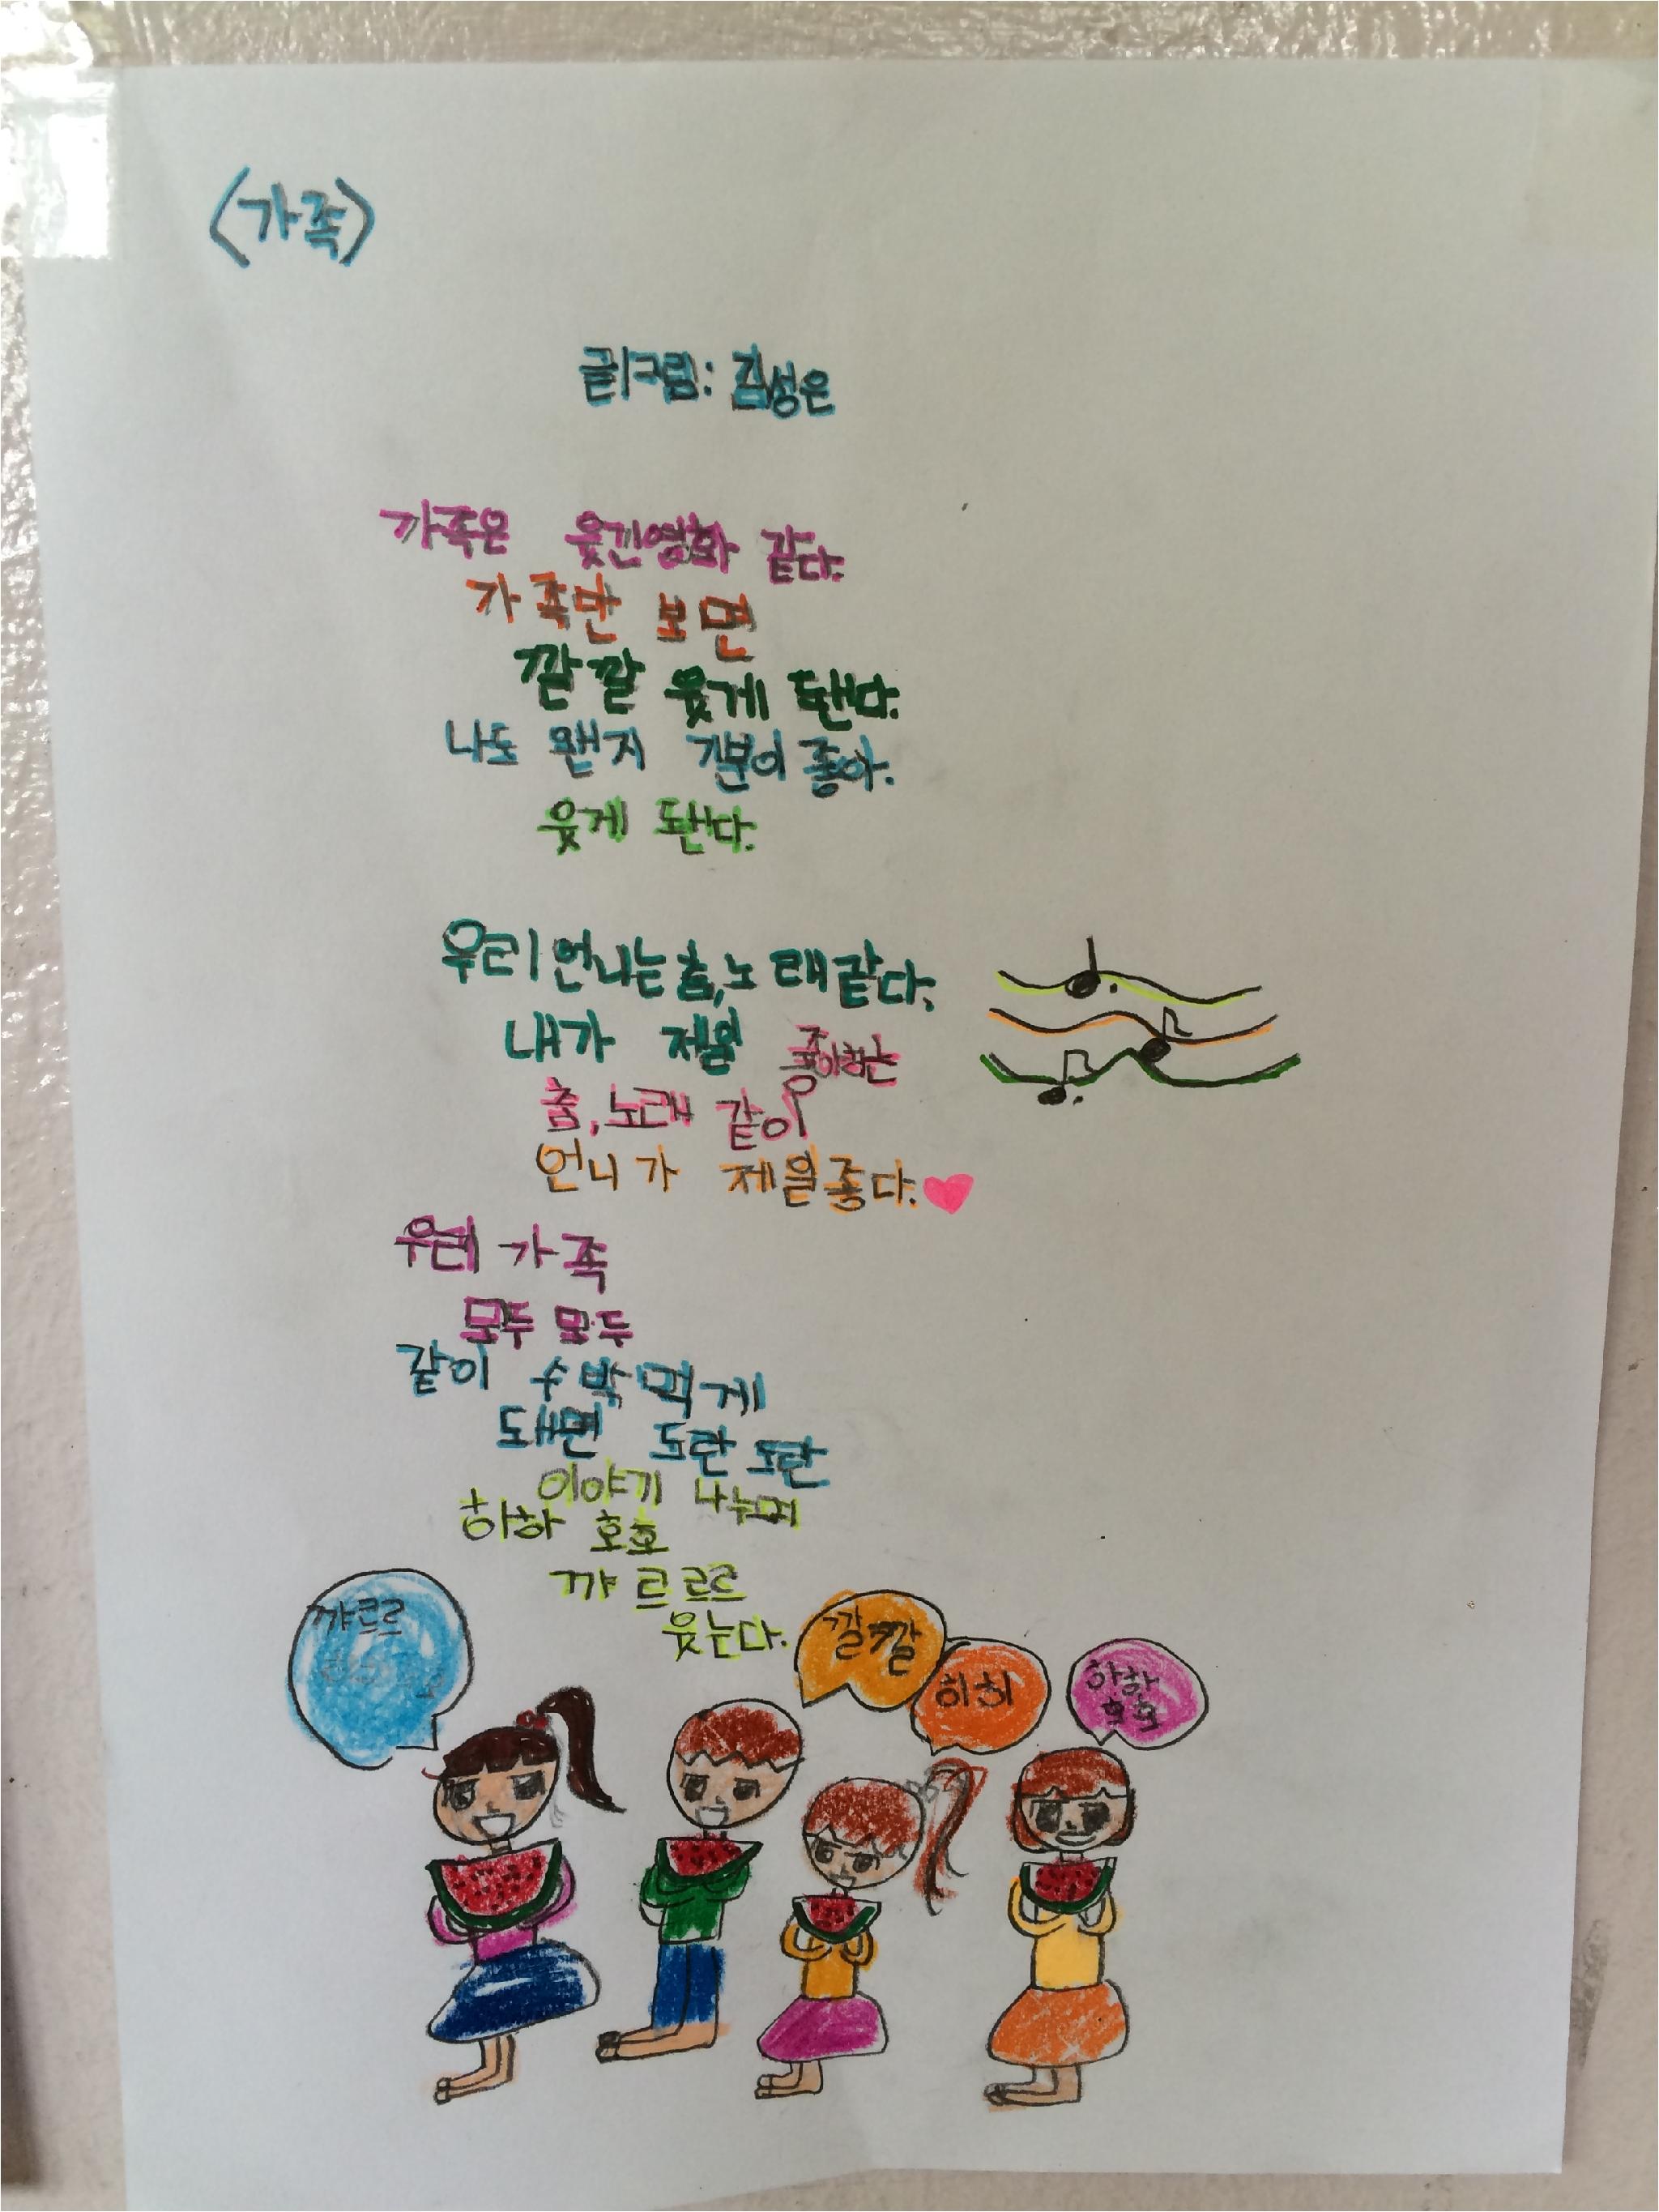 <가족>
글|그림: 김성은
가족은 웃긴영화 같다.
가족만 보면
깔깔 웃게 됀다.
나도 왠지 기분이 좋아.
웃게 됀다.
우리 언니는 춤,노래같다.
내가 제일 좋아하는
춤,노래 같이
언니가 제일좋다.
우리 가족
모두 모두
같이 수박먹게
돼면 도란 도란
이야기 나누며
하하 호호
꺄르르르
웃는다.
꺄르르
낄깔
히히
하하
호호